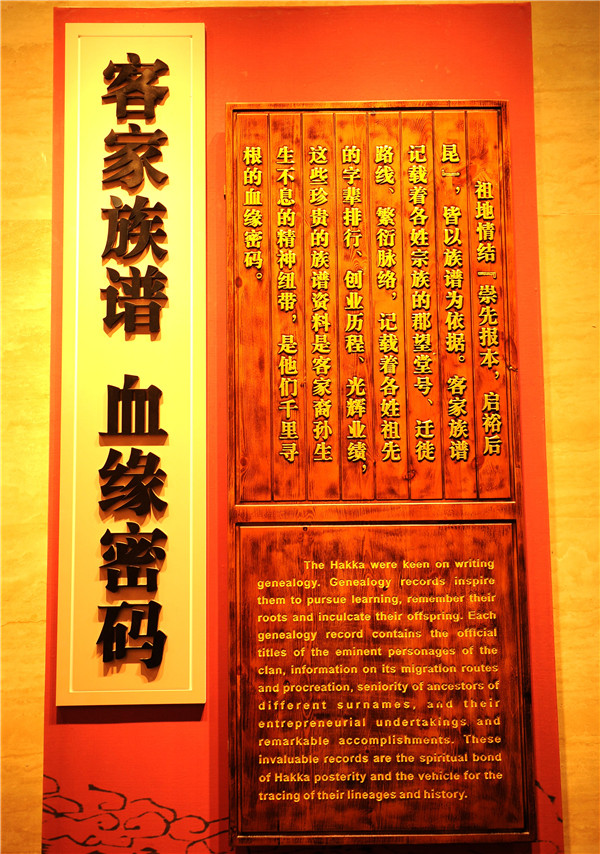 客家族谱 血缘密码
祖地情结『崇先报本，启裕后
昆』，皆以族谱为依据。客家族谱
记载着各姓宗族的郡望堂号、迁徙
路线、繁衍脉络，记载着各姓祖先
的字辈排行、创业历程、光辉业绩，
这些珍贵的族谱资料是客家裔孙生
生不息的精神纽带，是他们千里寻
根的血缘密码。
The Hakka were keen on writing
genealogy. Genealogy records inspire
them to pursue learning, remember their
roots and inculcate their offspring. Each
genealogy record contains the official
titles of the eminent personages of the
clan, information on its migration routes
and procreation, seniority of ancestors of
different surnames, and their
entrepreneurial undertakings and
remarkable accomplishments. These
invaluable records are the spiritual bond
of Hakka posterity and the vehicle for the
tracing of their lineages and history.